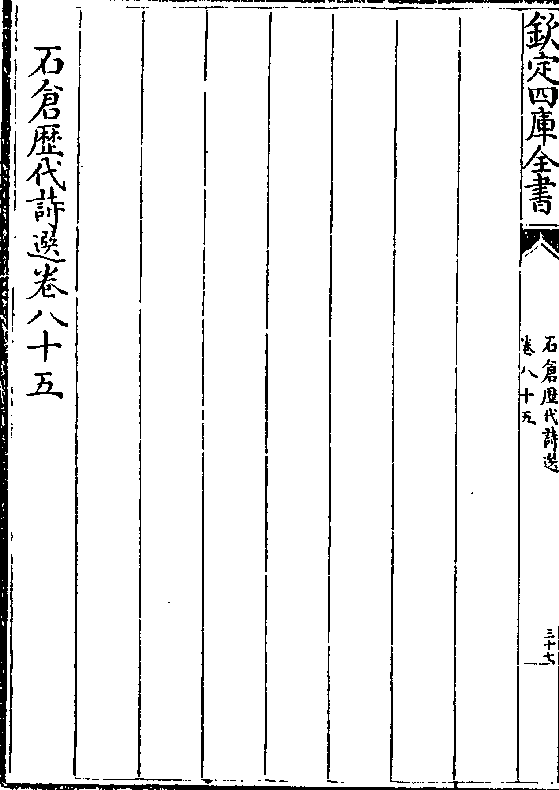 欽定四庫全書
石倉歷代詩選
卷八十五
三十七
石倉歷代詩選卷八十五